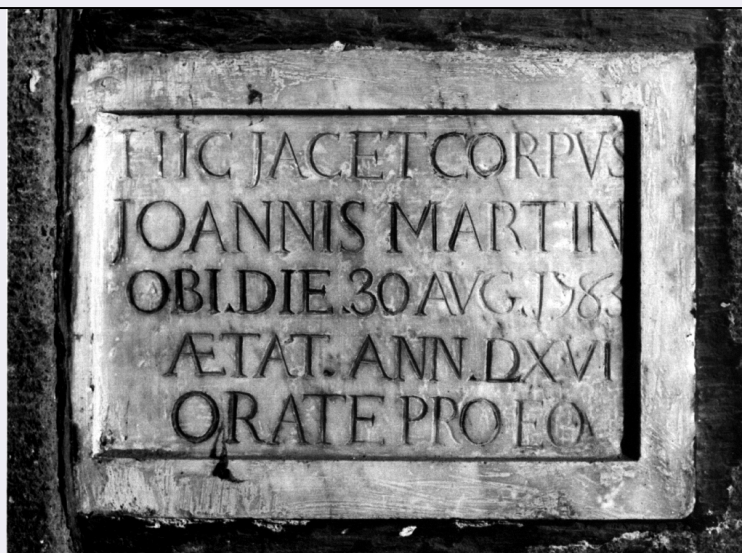 HIC JACET CORPVS
JOANNIS MARTIN
OBI.DIE.30 AVG.1783
ÆTAT. ANN.DXVI
ORATE PRO EO